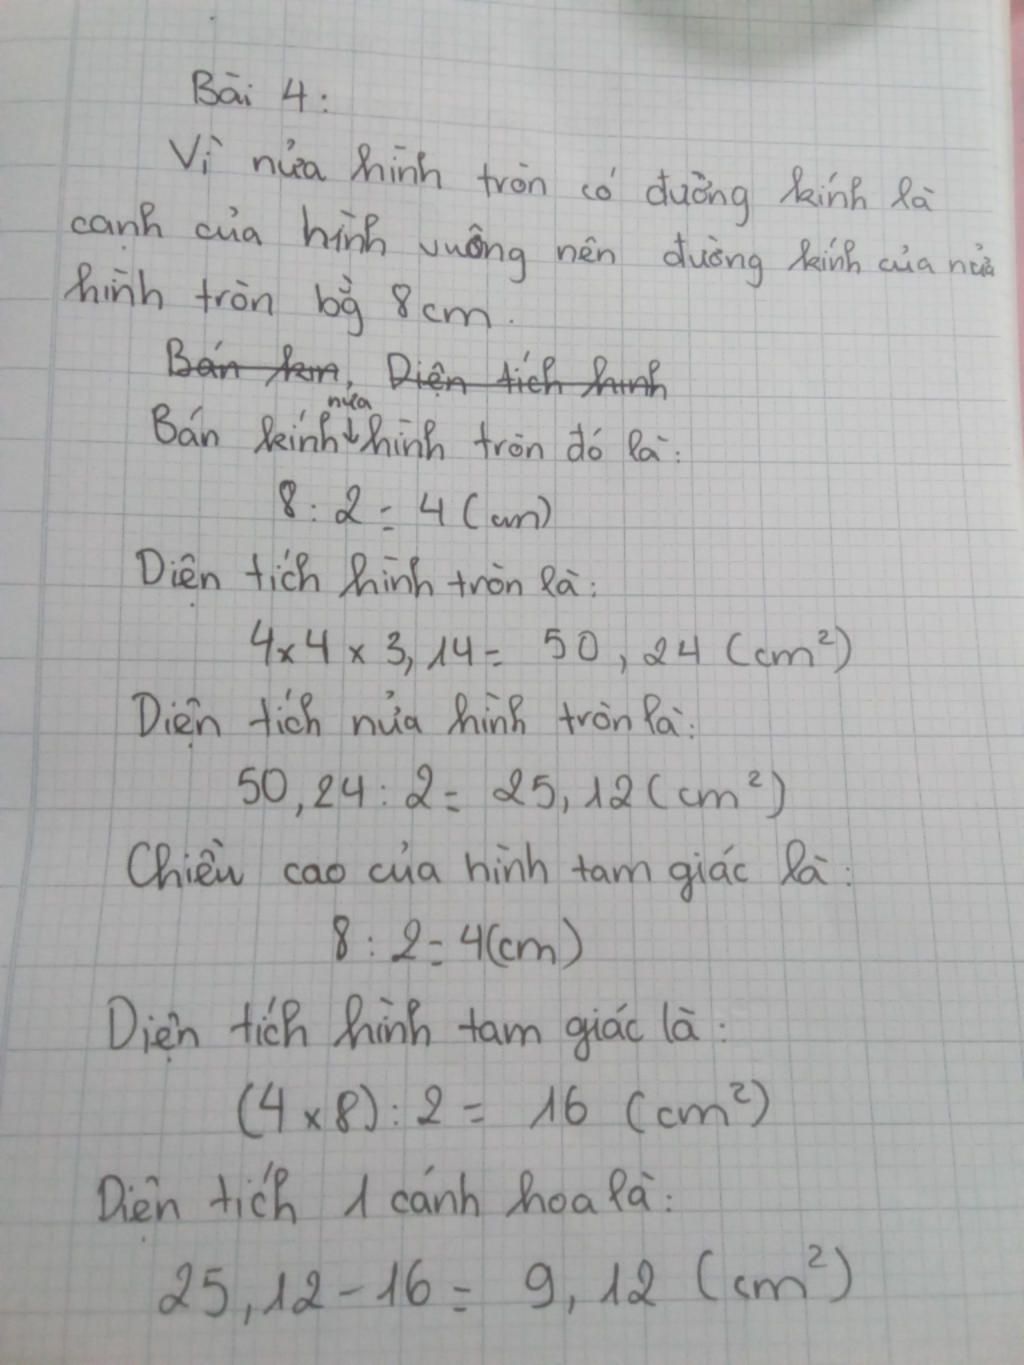 Bài 4:
Vì nửa hình tròn có đường kính là
cạnh của hình vuông nên đường kính của nửa
hình tròn bằg 8cm.
Bán kın, Diện tích hình
nửa
Bán kính↓hình tròn đó là:
8 : 2 = 4 (cm)
Diện tích hình tròn là:
4 x 4 x 3,14 = 50,24 (cm²)
Diện tích nửa hình tròn là:
50,24 : 2 = 25,12 (cm²)
Chiều cao của hình tam giác là:
8 : 2 = 4(cm)
Diện tích hình tam giác là:
(4 x 8) : 2 = 16 (cm²)
Diện tích 1 cánh hoa là:
25,12 - 16 = 9,12 (cm²)